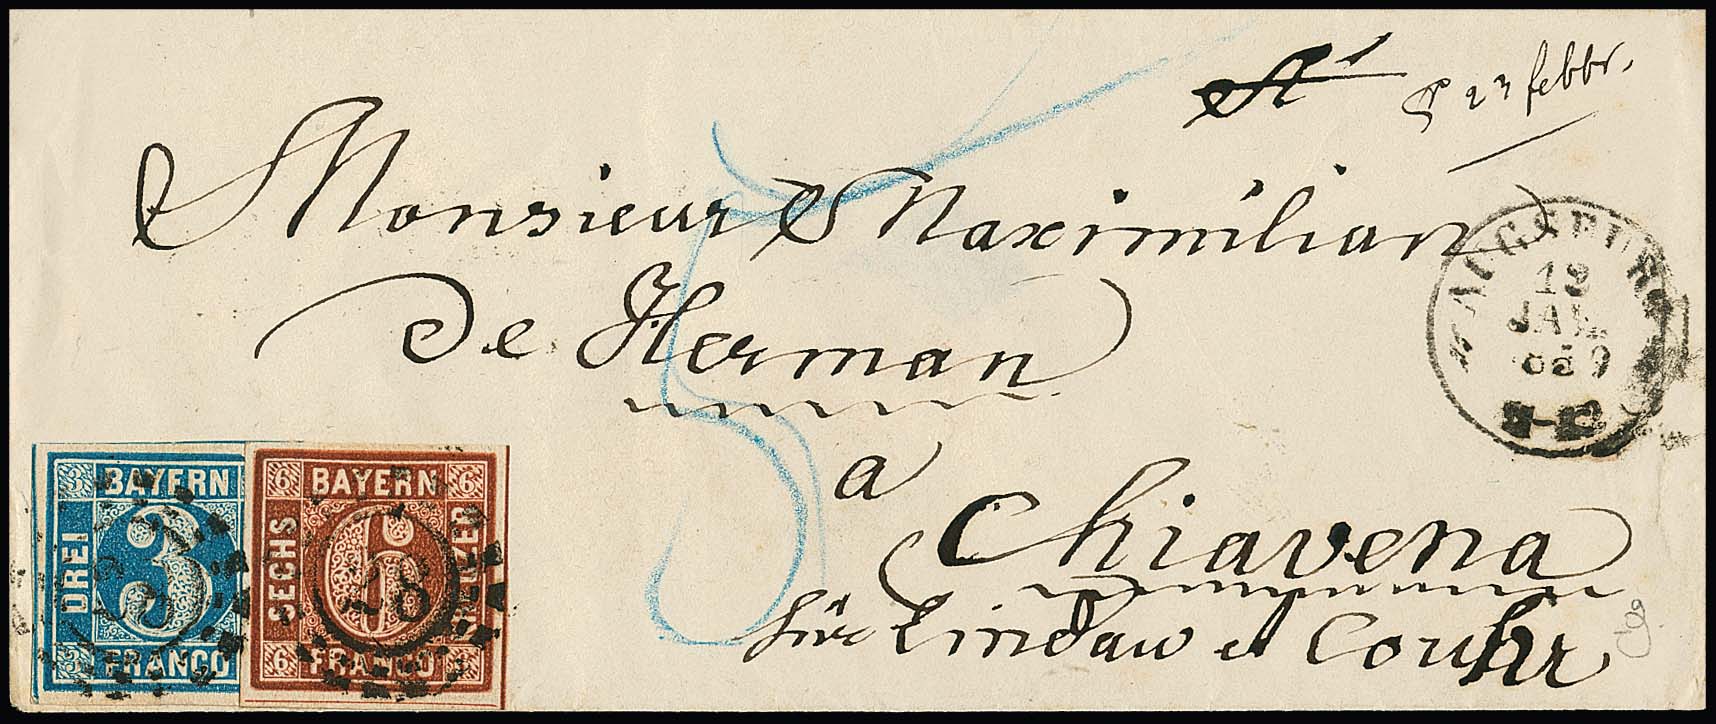 23 febbr.
Monsieur Maximilian
de Herman
à
Chiavena
Lindau et Couhr
AUGSBURG
19
JAN.
1859
5
3 BAYERN
DREI
3
3 FRANCO
6 BAYERN 6
SECHS
6
KREUZER
6 FRANCO
28